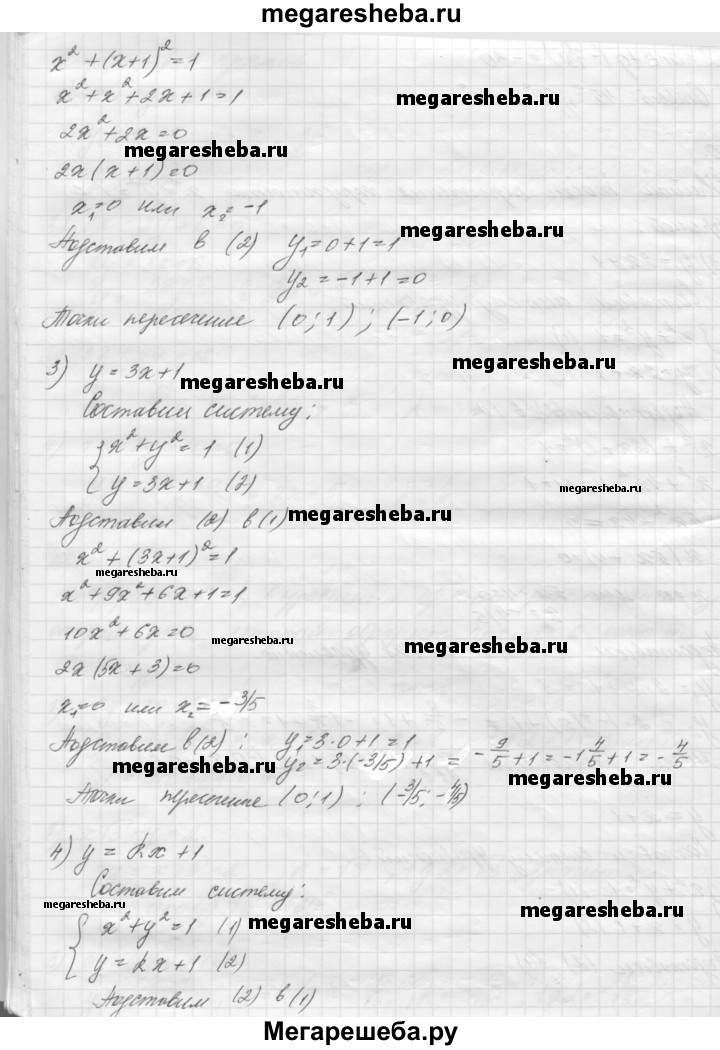 megaresheba.ru
x² + (x+1)² = 1
x² + x² + 2x + 1 = 1
megaresheba.ru
2x² + 2x = 0
megaresheba.ru
2x (x + 1) = 0
x₁ = 0 или x₂ = -1
Подставим в (2) y₁ = 0 + 1 = 1
megaresheba.ru
y₂ = -1 + 1 = 0
Точки пересечение (0; 1) ; (-1; 0)
megaresheba.ru
3) y = 3x + 1
megaresheba.ru
Составим систему:
{ x² + y² = 1 (1)
{ y = 3x + 1 (2)
megaresheba.ru
Подставим (2) в (1)
megaresheba.ru
x² + (3x+1)² = 1
megaresheba.ru
x² + 9x² + 6x + 1 = 1
10x² + 6x = 0
megaresheba.ru
megaresheba.ru
2x (5x + 3) = 0
x₁ = 0 или x₂ = - 3/5
Подставим в (2) : y₁ = 3 · 0 + 1 = 1
y₂ = 3 · (-3/5) + 1 = - 9/5 + 1 = -1 4/5 + 1 = - 4/5
megaresheba.ru
megaresheba.ru
Точки пересечение (0; 1) ; (-3/5; -4/5)
4) y = kx + 1
Составим систему:
megaresheba.ru
megaresheba.ru
{ x² + y² = 1 (1)
megaresheba.ru
{ y = kx + 1 (2)
Подставим (2) в (1)
Мегарешеба.ру